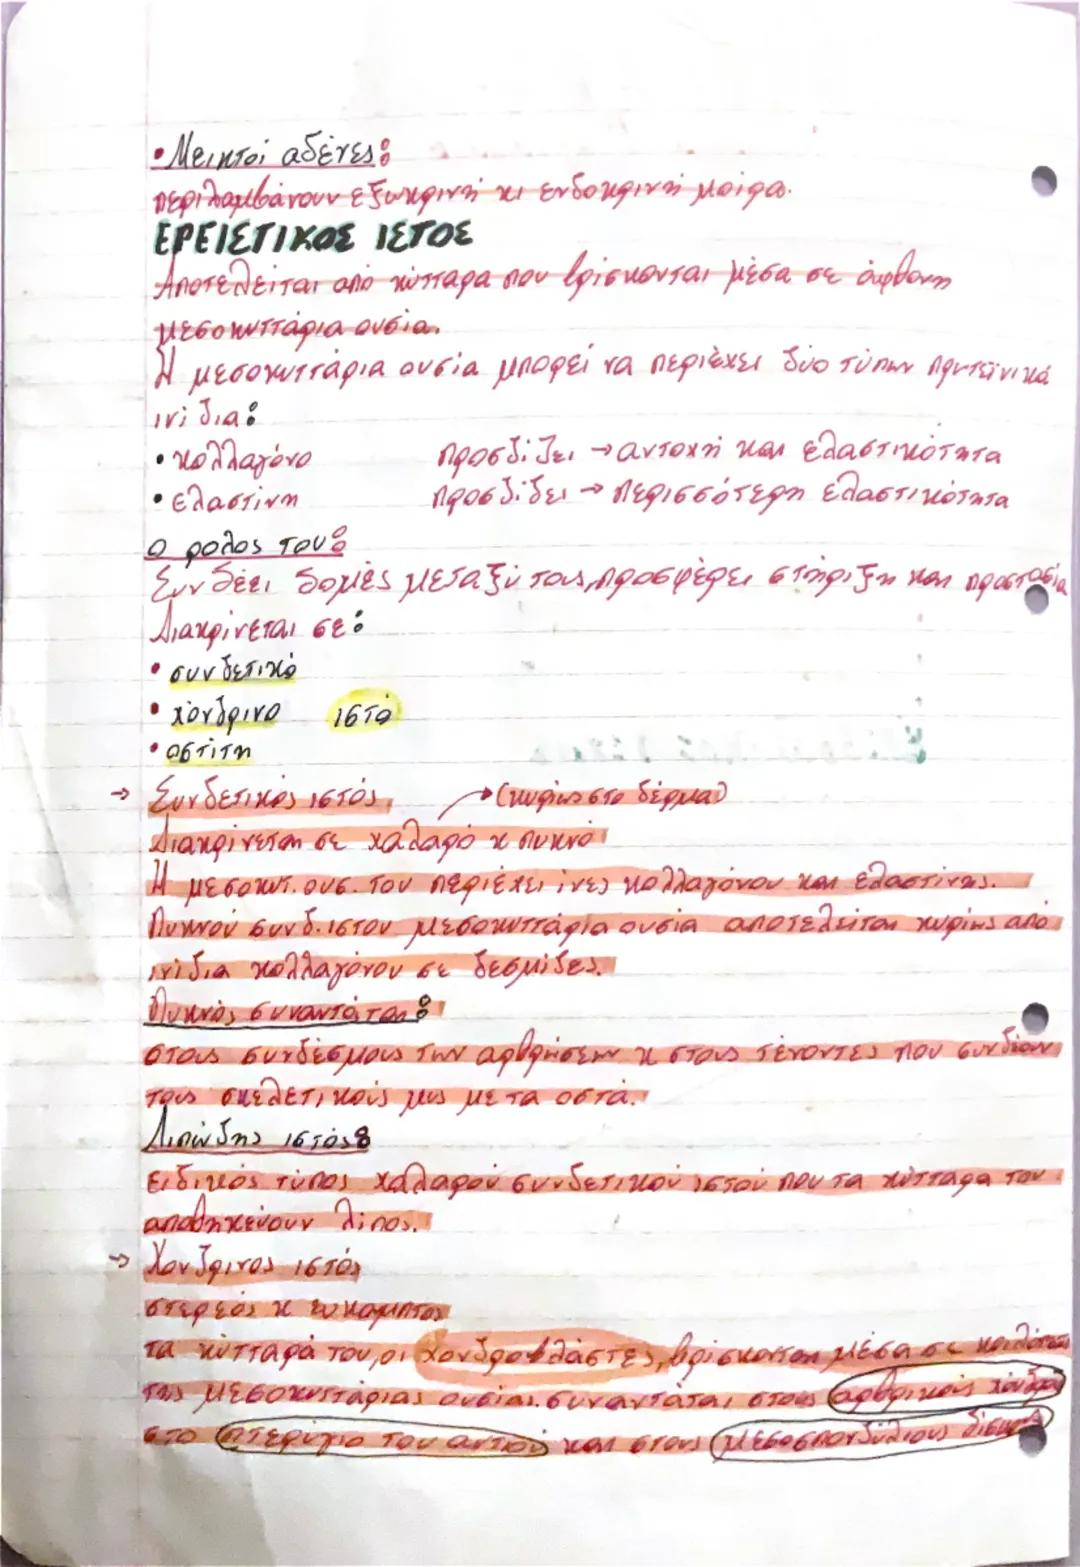 • Μεικτοί αδένες:
περιλαμβάνουν εξωκρινή κι ενδοκρινή μοίρα.
ΕΡΕΙΣΤΙΚΟΣ ΙΣΤΟΣ
Αποτελείται από κύτταρα που βρίσκονται μέσα σε άφθονη
μεσοκυττάρια ουσία.
Η μεσοκυττάρια ουσία μπορεί να περιέχει δύο τύπων πρωτεϊνικά
ινίδια:
• κολλαγόνο προσδίδει → αντοχή και ελαστικότητα
• ελαστίνη προσδίδει → περισσότερη ελαστικότητα
Ο ρόλος του:
Συνδέει δομές μεταξύ τους, προσφέρει στήριξη και προστασία
Διακρίνεται σε:
• συνδετικό
• χόνδρινο ιστό
• οστίτη
→ Συνδετικός ιστός → (κυρίως στο δέρμα)
Διακρίνεται σε χαλαρό κ πυκνό
Η μεσοκυτ. ουσ. του περιέχει ίνες κολλαγόνου και ελαστίνης.
Πυκνού συνδ. ιστού μεσοκυττάρια ουσία αποτελείται κυρίως από
ινίδια κολλαγόνου σε δεσμίδες.
Πυκνός συναντάται:
στους συνδέσμους των αρθρώσεων κ στους τένοντες που συνδέουν
τους σκελετικούς μυς με τα οστά.
Λιπώδης ιστός:
ειδικός τύπος χαλαρού συνδετικού ιστού που τα κύτταρα του
αποθηκεύουν λίπος.
→ Χονδρινος ιστός
στερεός κ ευκαμπτος
τα κύτταρά του, οι χονδροβλάστες, βρίσκονται μέσα σε κοιλότητες
της μεσοκυττάριας ουσίας. συναντάται στους αρθρικούς χόνδρους
στο πτερύγιο του αυτιού και στους μεσοσπονδύλιους δίσκους